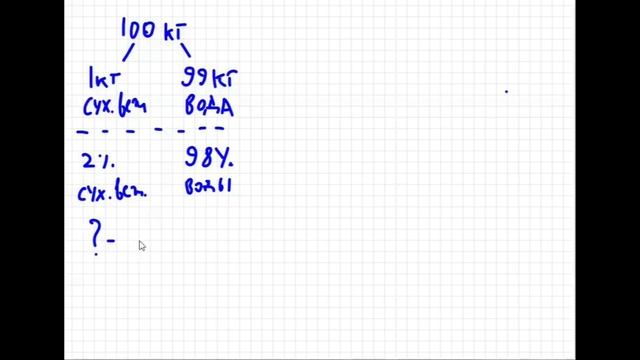 100 кг
1кт 99кг
сух.вещ вода
2%. 98%.
сух.вещ. воды
? -